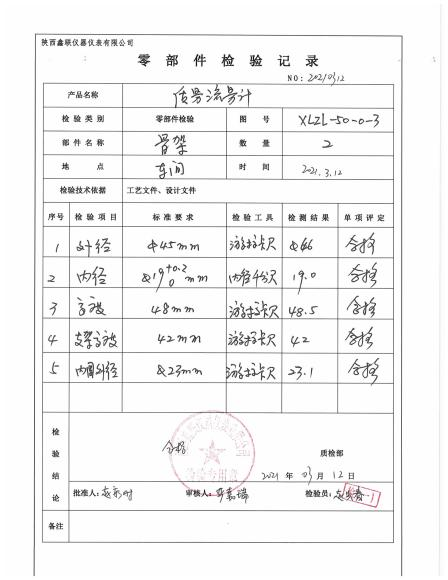 陕西鑫联仪器仪表有限公司
零部件检验记录
NO: 20210312
产品名称 质量流量计
检验类别 零部件检验 图号 XLZL-50-0-3
部件名称 骨架 数量 2
地点 车间 时间 2021.3.12
检验技术依据 工艺文件、设计文件
序号 检验项目 标准要求 检验工具 检测结果 单项评定
1 外径 φ45mm 游标卡尺 合格
2 内径 φ19 +0.2 0 mm 内径千分尺 19.0 合格
3 高度 48mm 游标卡尺 48.5 合格
4 支架高度 42mm 游标卡尺 42 合格
5 内圆外径 φ23mm 游标卡尺 23.1 合格
检验结论
合格
检验专用章
质检部
2021 年 03 月 12 日
批准人: 审核人: 检验员:
备注